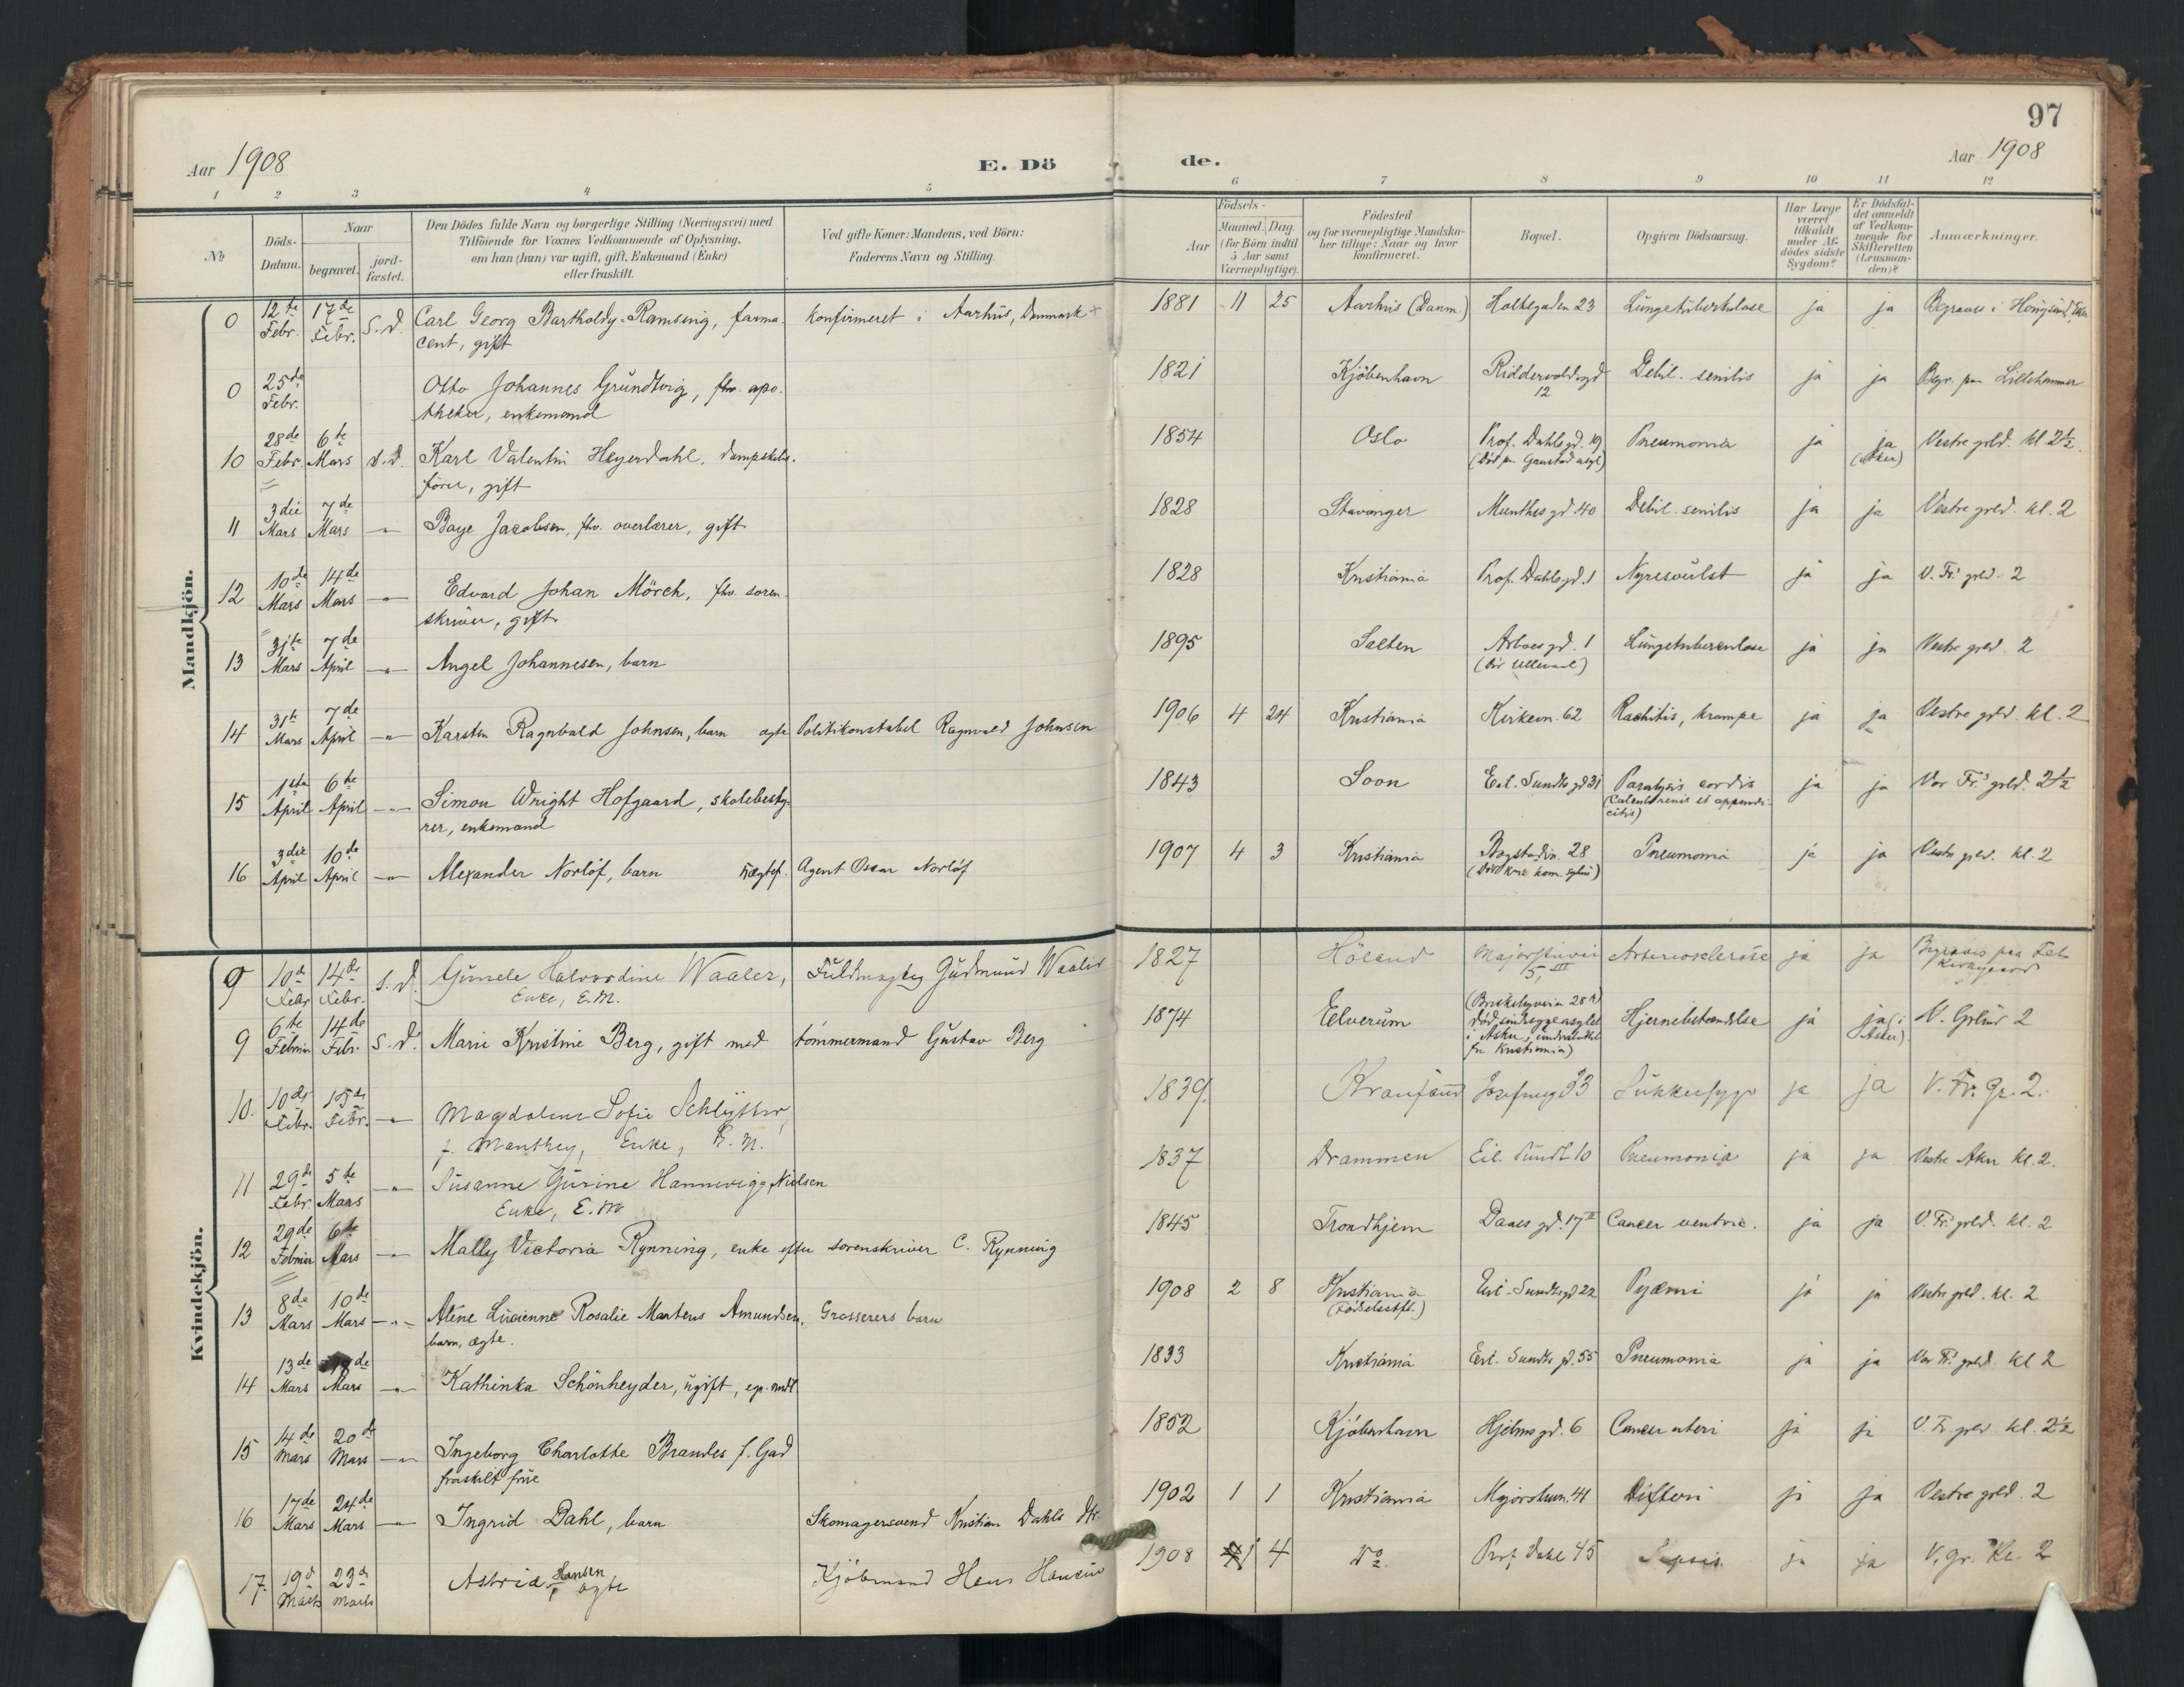 97
Aar 1908
E. Döde.
Aar 1908
1 2 3 4 5 6 7 8 9 10 11 12
No
Döds-Datum.
Naar
begravet.
jord-fæstet.
Den Dödes fulde Navn og borgerlige Stilling (Næringsvei) med
Tilföiende for Voxnes Vedkommende af Oplysning,
om han (hun) var ugift, gift, Enkemand (Enke)
eller fraskilt.
Ved gifte Koner: Mandens, ved Börn:
Faderens Navn og Stilling.
Födsels-
Aar
Maaned. Dag.
(for Börn indtil
5 Aar samt
Værnepligtige).
Födested
og for værnepligtige Mandska-
ber tillige: Naar og hvor
konfirmeret.
Bopæl.
Opgiven Dödsaarsag.
Har Læge
været
tilkaldt
under Af-
dödes sidste
Sygdom?
Er Dödsfal-
det anmeldt
af Vedkom-
mende for
Skifteretten
(Lensman-
den)?
Anmærkninger.
Mandkjön.
0 12te Febr. 17de Febr. S.D. Carl Georg Bartholdy-Ramsing, farma- konfirmeret i Aarhus, Danmark 1881 11 25 Aarhus (Danm.) Holtegaden 23 Lungetuberkulose ja ja Begraves i
cent, gift
0 25de Febr. Otto Johannes Grundtvig, fhv. apo- 1821 Kjöbenhavn Riddervoldsgd 12 Debil. senilis ja ja Begr. paa Lillehammer
theker, enkemand
10 28de Febr. 6te Mars s.d. Karl Valentin Heyerdahl, dampskibs- 1854 Oslo Prof. Dahlsgd. 19 (död paa Gaustad asyl) Pneumonia ja ja (Aker) Vestre grld. kl. 2½
förer, gift
11 3die Mars 7de Mars -"- Baye Jacobsen, fhv. overlærer, gift 1828 Stavanger Munthesgd. 40 Debil. senilis ja ja Vestre grld. kl. 2
12 10de Mars 14de Mars -"- Edvard Johan Mörch, fhv. soren- 1828 Kristiania Prof. Dahlsgd. 1 Nyresvulst ja ja V. Fr.s grld. 2
skriver, gift
13 31te Mars 7de April -"- Angel Johannesen, barn 1895 Salten Arboesgd. 1 (död Ullevaal) Lungetuberculose ja ja Vestre grld. 2
14 31te Mars 7de April -"- Karsten Ragnvald Johnsen, barn ægte Politikonstabel Ragnvald Johnsen 1906 4 24 Kristiania Kirkevn. 62 Rachitis, krampe ja ja Vestre grld. kl. 2
15 1ste April 6te April -"- Simon Wright Hofgaard, skolebesty- 1843 Soon Eil. Sundts gd 31 Paralysis cordis ja ja Vor Fr.s grld. 2½
rer, enkemand
16 3die April 10de April -"- Alexander Norlöf, barn uægtef. Agent Oscar Norlöf 1907 4 3 Kristiania Bogstadvn. 28 Pneumoni ja ja Vestre grld. kl. 2
Kvindekjön.
9 10de Febr. 14de Febr. s.d. Gunele Halvordine Waaler, Fuldmægtig Gudmund Waaler 1827 Höland Majorstuvei 5, III Arteriosclerose ja ja Begraves paa Fet Kirkegaard
Enke, E.M.
9 6te Februar 14de Febr. S.D. Marie Kristine Berg, gift med tömmermand Gustav Berg 1874 Elverum död sindssygeasylet i Asker Hjernebetændelse ja ja (i Asker) V. Grlund 2
10. 10de Febr. 15de Febr. -"- Magdalene Sofie Schlytter, 1839. Kransund Josefinegd 33 Sukkersyge ja ja V. Fr. Gr. 2.
f. Manthey, Enke, E.M.
11 29de Febr. 5te Mars -"- Susanne Gurine Hannevig Nielsen 1837 Drammen Eil. Sundt 10 Pneumonia ja ja Vestre Aker kl. 2.
Enke, E.M
12 29de Februar 6te Mars -"- Mally Victoria Rynning, enke efter sorenskriver C. Rynning 1845 Trondhjem Daaes gd. 17 II Cancer ventric. ja ja V. Fr.s grld. kl. 2
13 8de Mars 10de Mars -"- Alene Lucienne Rosalie Martens Amundsen, Grosserers barn 1908 2 8 Kristiania (Födselsstft.) Eil. Sundtsgd 22 Pyæmi ja ja Vestre grld. kl. 2
barn, ægte.
14 13de Mars 18de Mars -"- Kathinka Schönheyder, ugift, eg. midl. 1833 Kristiania Eil. Sundts gd. 55 Pneumonia ja ja Vor Fr.s grld. kl 2
15 14de Mars 20de Mars -"- Ingeborg Charlotte Brandes f. Gad 1852 Kjöbenhavn Hjelmsgd. 6 Cancer uteri ja ja V. Fr. grld kl. 2½
fraskilt frue
16 17de Mars 24de Mars -"- Ingrid Dahl, barn Skomagersvend Kristian Dahls dtr. 1902 1 1 Kristiania Majorstuvn. 41 Difteri ja ja Vestre grld. 2
17. 19de Marts 23de Marts Astrid Hansen, ægte Kjöbmand Hans Hansen 1908 1 4 Do. Prof. Dahl 45 Sepsis ja ja V. gr. Kl. 2